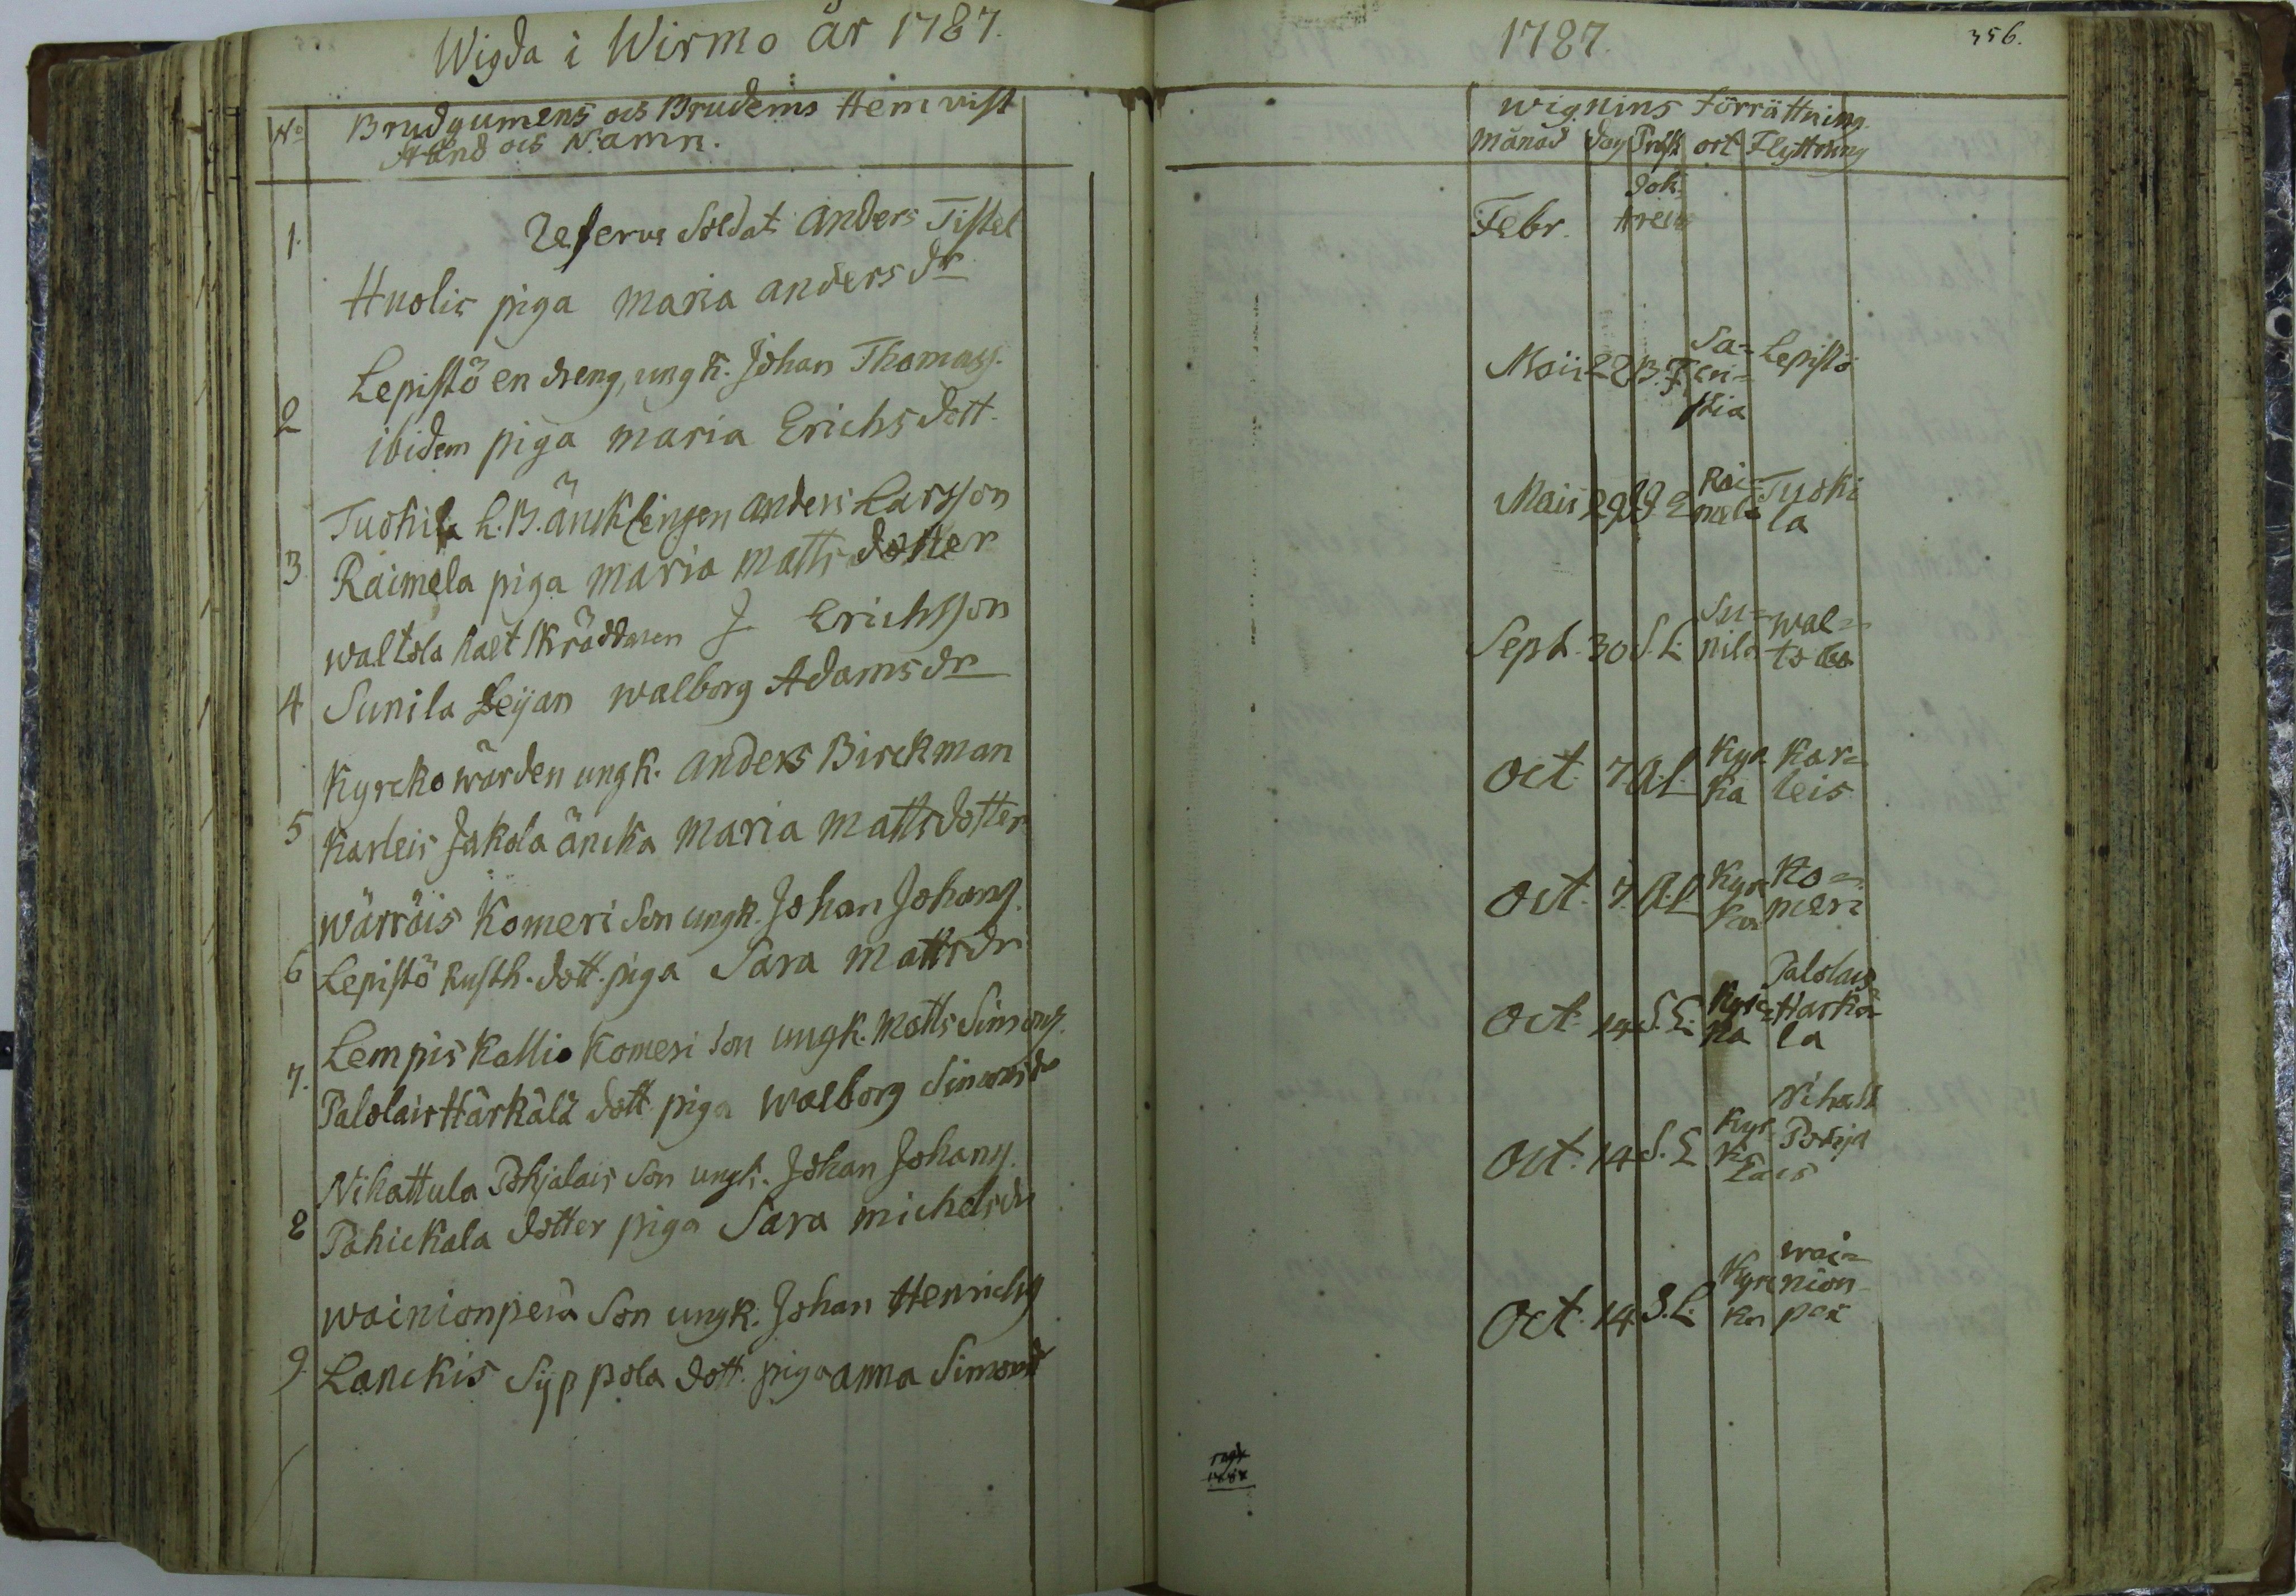 Wigda i Wirmo år 1787.
No
Brudgumens och Brudens Hemvist
Stånd och Namn.
1. Reserve Soldat Anders Tistel
Huolis piga Maria Andersdr
Lepistö en dreng, ungk. Johan Thomass.
2 ibidem piga Maria Erichsdott.
Tuokila L.B. äncklingen Anders Larsson
3 Raimela piga Maria Mattsdotter
Waltola skräddaren J. Erichsson
4 Sunila Pejan Walborg Adamsdr
Kyrckowärden ungk. Anders Birckman
5 Karleis Jakola äncka Maria Mattsdotter
Wärräis Komeri Son ungk. Johan Johans.
6 Lepistö Rusth. dott. piga Sara Mattsdr
Lempis Kallio Komeri Son ungk. Matts Simons.
7. Palolais Härkälä dott piga Walborg Simonsdr
Nihattula Pohjalais Son ungk. Johan Johans.
8 Pahickala dotter piga Sara Michelsdr
Wainionperä Son ungk. Johan Henrichs
9. Lanckis Syppola dott. piga Anna Simonsd
1787. 356.
Wignins Förrättning
Månad Dag Prest ort Flyttning
Febr.
Maii 28 B.F. Lepistö
Maii 29 Rai= Tuoki
mela la
Sept. 30 S.L. Su= Wal=
nila tola
Oct. 7 A.L. Kyr Kar=
ka leis
Oct. 7. A.L Kyr Ko=
ka meri
Palolais
Oct. 14 S.L. Kyrc= Härkä
ka la
Nihatt
Oct. 14 S.L Kyr= Pohja
ka
lais
wai=
Oct. 14 S.L. Kyrc nion
ka pää